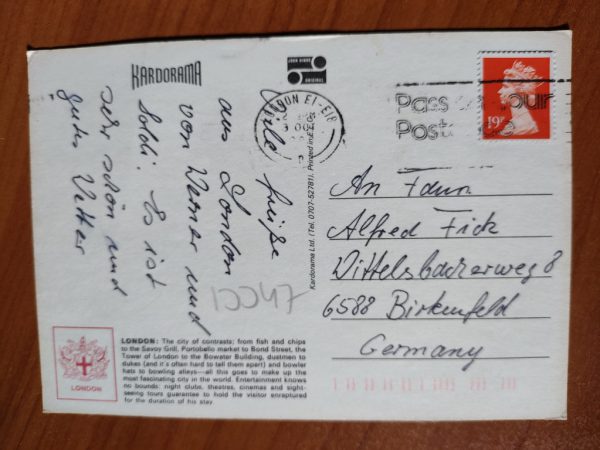 KARDORAMA
JOHN HINDE
ORIGINAL
LONDON E1-E18
3 OCT
Pass
your
Postc
19P
Grüße
aus London
von Werner und
Soldi. Es ist
sehr schön und
gutes Wetter
Kardorama Ltd. (Tel. 0707-52781). Printed in
An Fam
Alfred Fick
Wittelsbacherweg 8
6588 Birkenfeld
Germany
13347
LONDON
LONDON: The city of contrasts; from fish and chips
to the Savoy Grill, Portobello market to Bond Street, the
Tower of London to the Bowater Building, dustmen to
dukes (and it's often hard to tell them apart) and bowler
hats to bowling alleys—all this goes to make up the
most fascinating city in the world. Entertainment knows
no bounds: night clubs, theatres, cinemas and sight-
seeing tours guarantee to hold the visitor enraptured
for the duration of his stay.